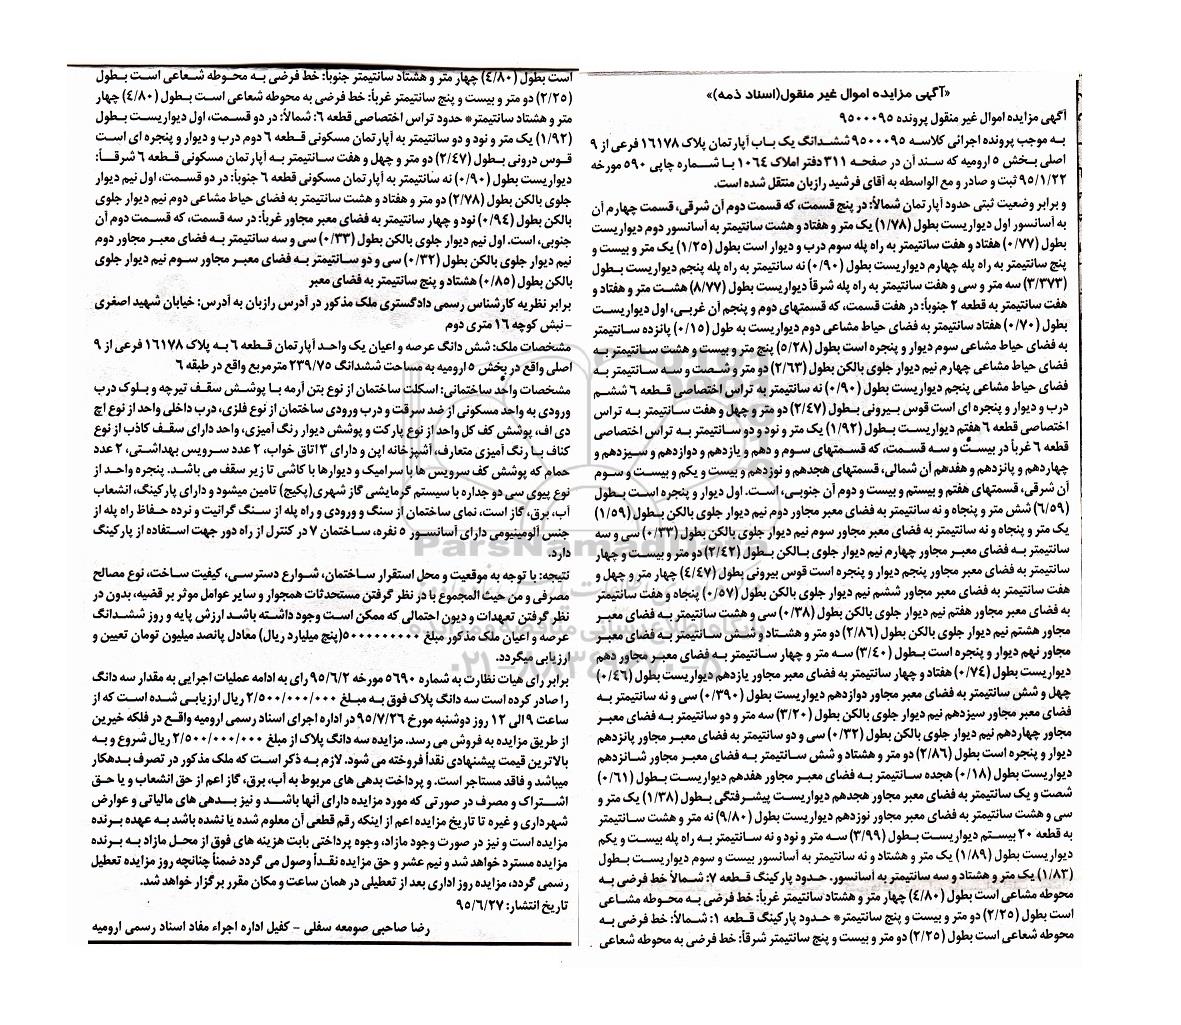 «آگهی مزایده اموال غیر منقول(اسناد ذمه)»
آگهی مزایده اموال غیر منقول پرونده ۹۵۰۰۰۹۵
به موجب پرونده اجرائی کلاسه ۹۵۰۰۰۹۵ ششدانگ یک باب آپارتمان پلاک ۱۶۱۷۸ فرعی از ۹
اصلی بخش ۵ ارومیه که سند آن در صفحه ۳۱۱ دفتر املاک ۱۰۶۴ با شماره چاپی ۵۹۰ مورخه
۹۵/۱/۲۲ ثبت و صادر و مع الواسطه به آقای فرشید رازبان منتقل شده است.
و برابر وضعیت ثبتی حدود آپارتمان شمالاً: در پنج قسمت، که قسمت دوم آن شرقی، قسمت چهارم آن
به آسانسور اول دیواریست بطول (۱/۷۸) یک متر و هفتاد و هشت سانتیمتر به آسانسور دوم دیواریست
بطول (۰/۷۷) هفتاد و هفت سانتیمتر به راه پله سوم درب و دیوار است بطول (۱/۲۵) یک متر و بیست و
پنج سانتیمتر به راه پله چهارم دیواریست بطول (۰/۹۰) نه سانتیمتر به راه پله پنجم دیواریست بطول
(۳/۳۷۳) سه متر و سی و هفت سانتیمتر به راه پله شرقاً دیواریست بطول (۸/۷۷) هشت متر و هفتاد و
هفت سانتیمتر به قطعه ۲ جنوباً: در هفت قسمت، که قسمتهای دوم و پنجم آن غربی، اول دیواریست
بطول (۰/۷۰) هفتاد سانتیمتر به فضای حیاط مشاعی دوم دیواریست به طول (۰/۱۵) پانزده سانتیمتر
به فضای حیاط مشاعی سوم دیوار و پنجره است بطول (۵/۲۸) پنج متر و بیست و هشت سانتیمتر به
فضای حیاط مشاعی چهارم نیم دیوار جلوی بالکن بطول (۲/۶۳) دو متر و شصت و سه سانتیمتر به
فضای حیاط مشاعی پنجم دیواریست بطول (۰/۹۰) نه سانتیمتر به تراس اختصاصی قطعه ۶ ششم
درب و دیوار و پنجره ای است قوس بیرونی بطول (۲/۴۷) دو متر و چهل و هفت سانتیمتر به تراس
اختصاصی قطعه ۶ هفتم دیواریست بطول (۱/۹۲) یک متر و نود و دو سانتیمتر به تراس اختصاصی
قطعه ۶ غرباً در بیست و سه قسمت، که قسمتهای سوم و دهم و یازدهم و دوازدهم و سیزدهم و
چهاردهم و پانزدهم و هفدهم آن شمالی، قسمتهای هجدهم و نوزدهم و بیست و یکم و بیست و سوم
آن شرقی، قسمتهای هفتم و بیستم و بیست و دوم آن جنوبی، است. اول دیوار و پنجره است بطول
(۶/۵۹) شش متر و پنجاه و نه سانتیمتر به فضای معبر مجاور دوم نیم دیوار جلوی بالکن بطول (۱/۵۹)
یک متر و پنجاه و نه سانتیمتر به فضای معبر مجاور سوم نیم دیوار جلوی بالکن بطول (۰/۳۳) سی و سه
سانتیمتر به فضای معبر مجاور چهارم نیم دیوار جلوی بالکن بطول (۲/۴۲) دو متر و بیست و چهار
سانتیمتر به فضای معبر مجاور پنجم دیوار و پنجره است قوس بیرونی بطول (۴/۴۷) چهار متر و چهل و
هفت سانتیمتر به فضای معبر مجاور ششم نیم دیوار جلوی بالکن بطول (۰/۵۷) پنجاه و هفت سانتیمتر
به فضای معبر مجاور هفتم نیم دیوار جلوی بالکن بطول (۰/۳۸) سی و هشت سانتیمتر به فضای معبر
مجاور هشتم نیم دیوار جلوی بالکن بطول (۲/۸۶) دو متر و هشتاد و شش سانتیمتر به فضای معبر
مجاور نهم دیوار و پنجره است بطول (۳/۴۰) سه متر و چهار سانتیمتر به فضای معبر مجاور دهم
دیواریست بطول (۰/۷۴) هفتاد و چهار سانتیمتر به فضای معبر مجاور یازدهم دیواریست بطول (۰/۴۶)
چهل و شش سانتیمتر به فضای معبر مجاور دوازدهم دیواریست بطول (۰/۳۹۰) سی و نه سانتیمتر به
فضای معبر مجاور سیزدهم نیم دیوار جلوی بالکن بطول (۳/۲۰) سه متر و دو سانتیمتر به فضای معبر
مجاور چهاردهم نیم دیوار جلوی بالکن بطول (۰/۳۲) سی و دو سانتیمتر به فضای معبر مجاور پانزدهم
دیوار و پنجره است بطول (۲/۸۶) دو متر و هشتاد و شش سانتیمتر به فضای معبر مجاور شانزدهم
دیواریست بطول (۰/۱۸) هجده سانتیمتر به فضای معبر مجاور هفدهم دیواریست بطول (۰/۶۱)
شصت و یک سانتیمتر به فضای معبر مجاور هجدهم دیواریست پیشرفتگی بطول (۱/۳۸) یک متر و
سی و هشت سانتیمتر به فضای معبر مجاور نوزدهم دیواریست بطول (۹/۸۰) نه متر و هشت سانتیمتر
به قطعه ۲۰ بیستم دیواریست بطول (۳/۹۹) سه متر و نود و نه سانتیمتر به راه پله بیست و یکم
دیواریست بطول (۱/۸۹) یک متر و هشتاد و نه سانتیمتر به آسانسور بیست و سوم دیواریست بطول
(۱/۸۳) یک متر و هشتاد و سه سانتیمتر به آسانسور. حدود پارکینگ قطعه ۷: شمالاً خط فرضی به
محوطه مشاعی است بطول (۴/۸۰) چهار متر و هشتاد سانتیمتر غرباً: خط فرضی به محوطه مشاعی
است بطول (۲/۲۵) دو متر و بیست و پنج سانتیمتر* حدود پارکینگ قطعه ۱: شمالاً: خط فرضی به
محوطه شعاعی است بطول (۲/۲۵) دو متر و بیست و پنج سانتیمتر شرقاً: خط فرضی به محوطه شعاعی
است بطول (۴/۸۰) چهار متر و هشتاد سانتیمتر جنوباً: خط فرضی به محوطه شعاعی است بطول
(۲/۲۵) دو متر و بیست و پنج سانتیمتر غرباً: خط فرضی به محوطه شعاعی است بطول (۴/۸۰) چهار
متر و هشتاد سانتیمتر* حدود تراس اختصاصی قطعه ۶: شمالاً: در دو قسمت، اول دیواریست بطول
(۱/۹۲) یک متر و نود و دو سانتیمتر به آپارتمان مسکونی قطعه ۶ دوم درب و دیوار و پنجره ای است
قوس درونی بطول (۲/۴۷) دو متر و چهل و هفت سانتیمتر به آپارتمان مسکونی قطعه ۶ شرقاً:
دیواریست بطول (۰/۹۰) نه سانتیمتر به آپارتمان مسکونی قطعه ۶ جنوباً: در دو قسمت، اول نیم دیوار
جلوی بالکن بطول (۲/۷۸) دو متر و هفتاد و هشت سانتیمتر به فضای حیاط مشاعی دوم نیم دیوار جلوی
بالکن بطول (۰/۹۴) نود و چهار سانتیمتر به فضای معبر مجاور غرباً: در سه قسمت، که قسمت دوم آن
جنوبی، است. اول نیم دیوار جلوی بالکن بطول (۰/۳۳) سی و سه سانتیمتر به فضای معبر مجاور دوم
نیم دیوار جلوی بالکن بطول (۰/۳۲) سی و دو سانتیمتر به فضای معبر مجاور سوم نیم دیوار جلوی
بالکن بطول (۰/۸۵) هشتاد و پنج سانتیمتر به فضای معبر
برابر نظریه کارشناس رسمی دادگستری ملک مذکور در آدرس رازبان به آدرس: خیابان شهید اصغری
- نبش کوچه ۱۶ متری دوم
مشخصات ملک: شش دانگ عرصه و اعیان یک واحد آپارتمان قطعه ۶ به پلاک ۱۶۱۷۸ فرعی از ۹
اصلی واقع در بخش ۵ ارومیه به مساحت ششدانگ ۲۳۹/۷۵ مترمربع واقع در طبقه ۶
مشخصات واحد ساختمانی: اسکلت ساختمان از نوع بتن آرمه با پوشش سقف تیرچه و بلوک درب
ورودی به واحد مسکونی از ضد سرقت و درب ورودی ساختمان از نوع فلزی، درب داخلی واحد از نوع اچ
دی اف، پوشش کف کل واحد از نوع پارکت و پوشش دیوار رنگ آمیزی، واحد دارای سقف کاذب از نوع
کناف با رنگ آمیزی متعارف، آشپزخانه اپن و دارای ۳ اتاق خواب، ۲ عدد سرویس بهداشتی، ۲ عدد
حمام که پوشش کف سرویس ها با سرامیک و دیوارها با کاشی تا زیر سقف می باشد. پنجره واحد از
نوع پیوی سی دو جداره با سیستم گرمایشی گاز شهری(پکیج) تامین میشود و دارای پارکینگ، انشعاب
آب، برق، گاز است، نمای ساختمان از سنگ و ورودی و راه پله از سنگ گرانیت و نرده حفاظ راه پله از
جنس آلومینیومی دارای آسانسور ۵ نفره، ساختمان ۷ در کنترل از راه دور جهت استفاده از پارکینگ
دارد.
نتیجه: با توجه به موقعیت و محل استقرار ساختمان، شوارع دسترسی، کیفیت ساخت، نوع مصالح
مصرفی و من حیث المجموع با در نظر گرفتن مستحدثات همجوار و سایر عوامل موثر بر قضیه، بدون در
نظر گرفتن تعهدات و دیون احتمالی که ممکن است وجود داشته باشد ارزش پایه و روز ششدانگ
عرصه و اعیان ملک مذکور مبلغ ۵۰۰۰۰۰۰۰۰۰(پنج میلیارد ریال) معادل پانصد میلیون تومان تعیین و
ارزیابی میگردد.
برابر رای هیات نظارت به شماره ۵۶۹۰ مورخه ۹۵/۶/۲ رای به ادامه عملیات اجرایی به مقدار سه دانگ
را صادر کرده است سه دانگ پلاک فوق به مبلغ ۲/۵۰۰/۰۰۰/۰۰۰ ریال ارزیابی شده است که از
ساعت ۹ الی ۱۲ روز دوشنبه مورخ ۹۵/۷/۲۶ در اداره اجرای اسناد رسمی ارومیه واقع در فلکه خیرین
از طریق مزایده به فروش می رسد. مزایده سه دانگ پلاک از مبلغ ۲/۵۰۰/۰۰۰/۰۰۰ ریال شروع و به
بالاترین قیمت پیشنهادی نقداً فروخته می شود. لازم به ذکر است که ملک مذکور در تصرف بدهکار
میباشد و فاقد مستاجر است. و پرداخت بدهی های مربوط به آب، برق، گاز اعم از حق انشعاب و یا حق
اشتراک و مصرف در صورتی که مورد مزایده دارای آنها باشد و نیز بدهی های مالیاتی و عوارض
شهرداری و غیره تا تاریخ مزایده اعم از اینکه رقم قطعی آن معلوم شده یا نشده باشد به عهده برنده
مزایده است و نیز در صورت وجود مازاد، وجوه پرداختی بابت هزینه های فوق از محل مازاد به برنده
مزایده مسترد خواهد شد و نیم عشر و حق مزایده نقداً وصول می گردد ضمناً چنانچه روز مزایده تعطیل
رسمی گردد، مزایده روز اداری بعد از تعطیلی در همان ساعت و مکان مقرر برگزار خواهد شد.
تاریخ انتشار: ۹۵/۶/۲۷
رضا صاحبی صومعه سفلی - کفیل اداره اجراء مفاد اسناد رسمی ارومیه